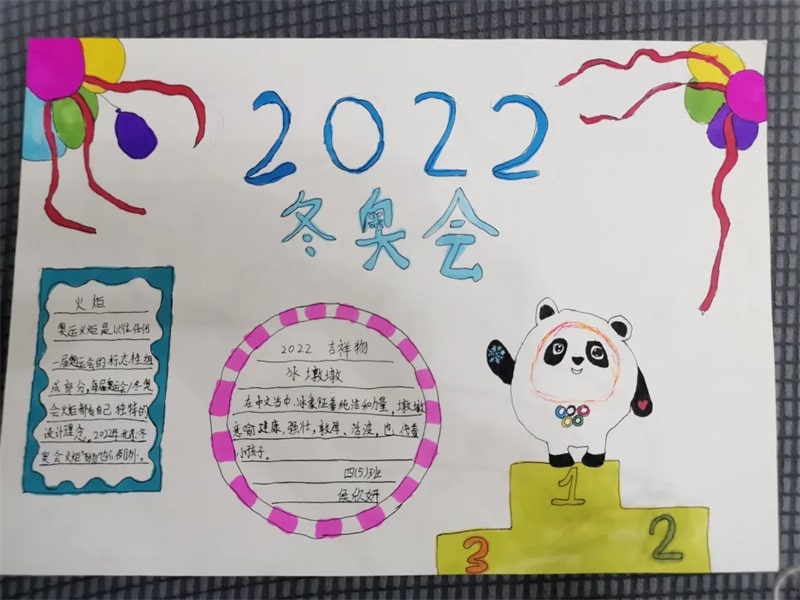 2022
冬奥会
火炬
奥运火炬是以往任何
一届奥运会的标志性组
成部分,每届奥运会/冬奥
会火炬都有自己独特的
设计理念。2022年北京冬
奥会火炬
2022 吉祥物
冰墩墩
在中文当中,冰象征着纯洁和力量,墩墩
意喻健康,强壮,敦厚、活泼,也代表
小孩子。
四(5)班
侯欣妍
1
2
3